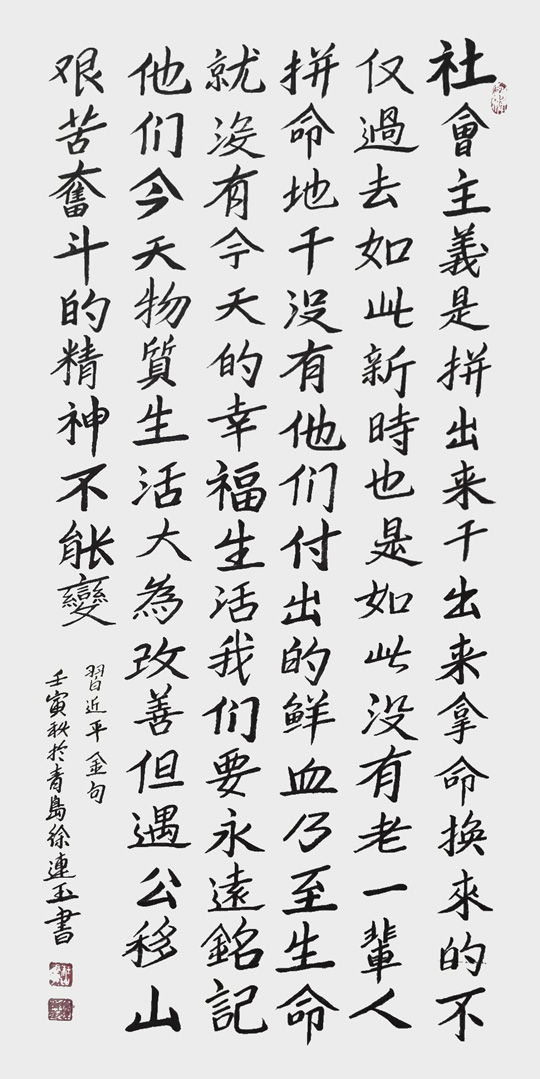 社會主義是拼出来干出来拿命換來的不
仅過去如此新時也是如此没有老一輩人
拼命地干没有他们付出的鮮血乃至生命
就没有今天的幸福生活我们要永遠銘記
他们今天物質生活大為改善但遇公移山
艰苦奮斗的精神不能變
習近平金句
壬寅秋於青島徐連玉書